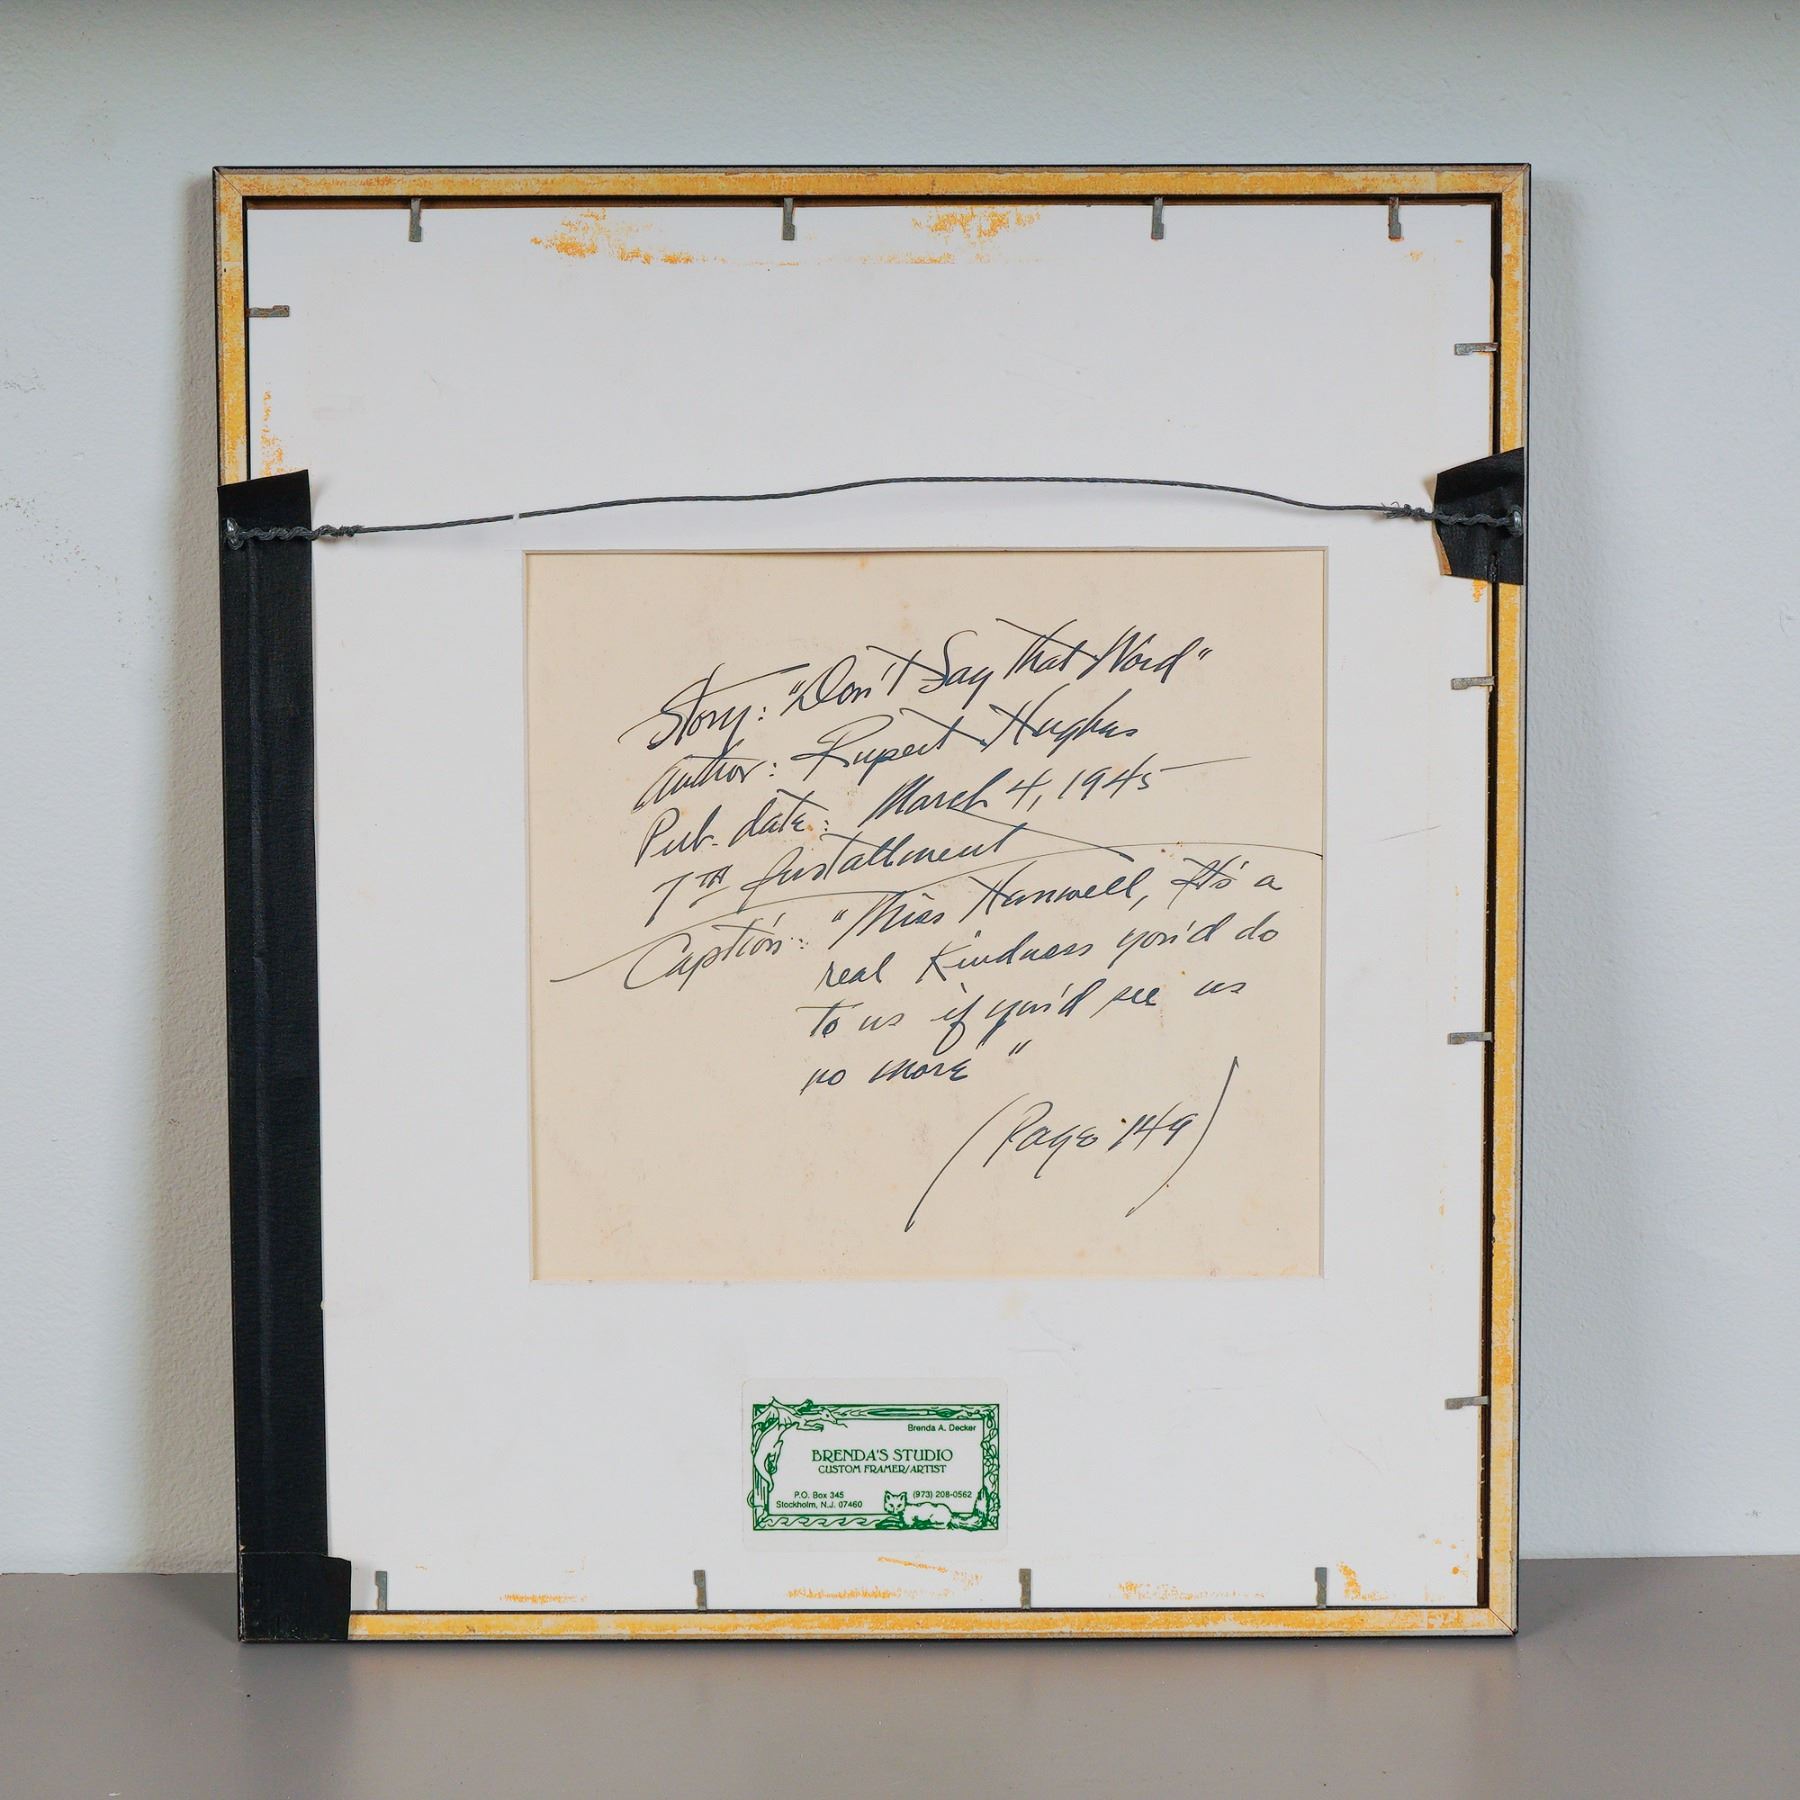 Story: "Don't Say That Word"
Author: Rupert Hughes
Pub. date: March 4, 1945
7TH Installment
Caption: "Miss Hanwell, It's a
real kindness you'd do
to us if you'd see us
no more"
(Page 149)
Brenda A. Decker
BRENDA'S STUDIO
CUSTOM FRAMER/ARTIST
P.O. Box 345 (973) 208-0562
Stockholm, N.J. 07460